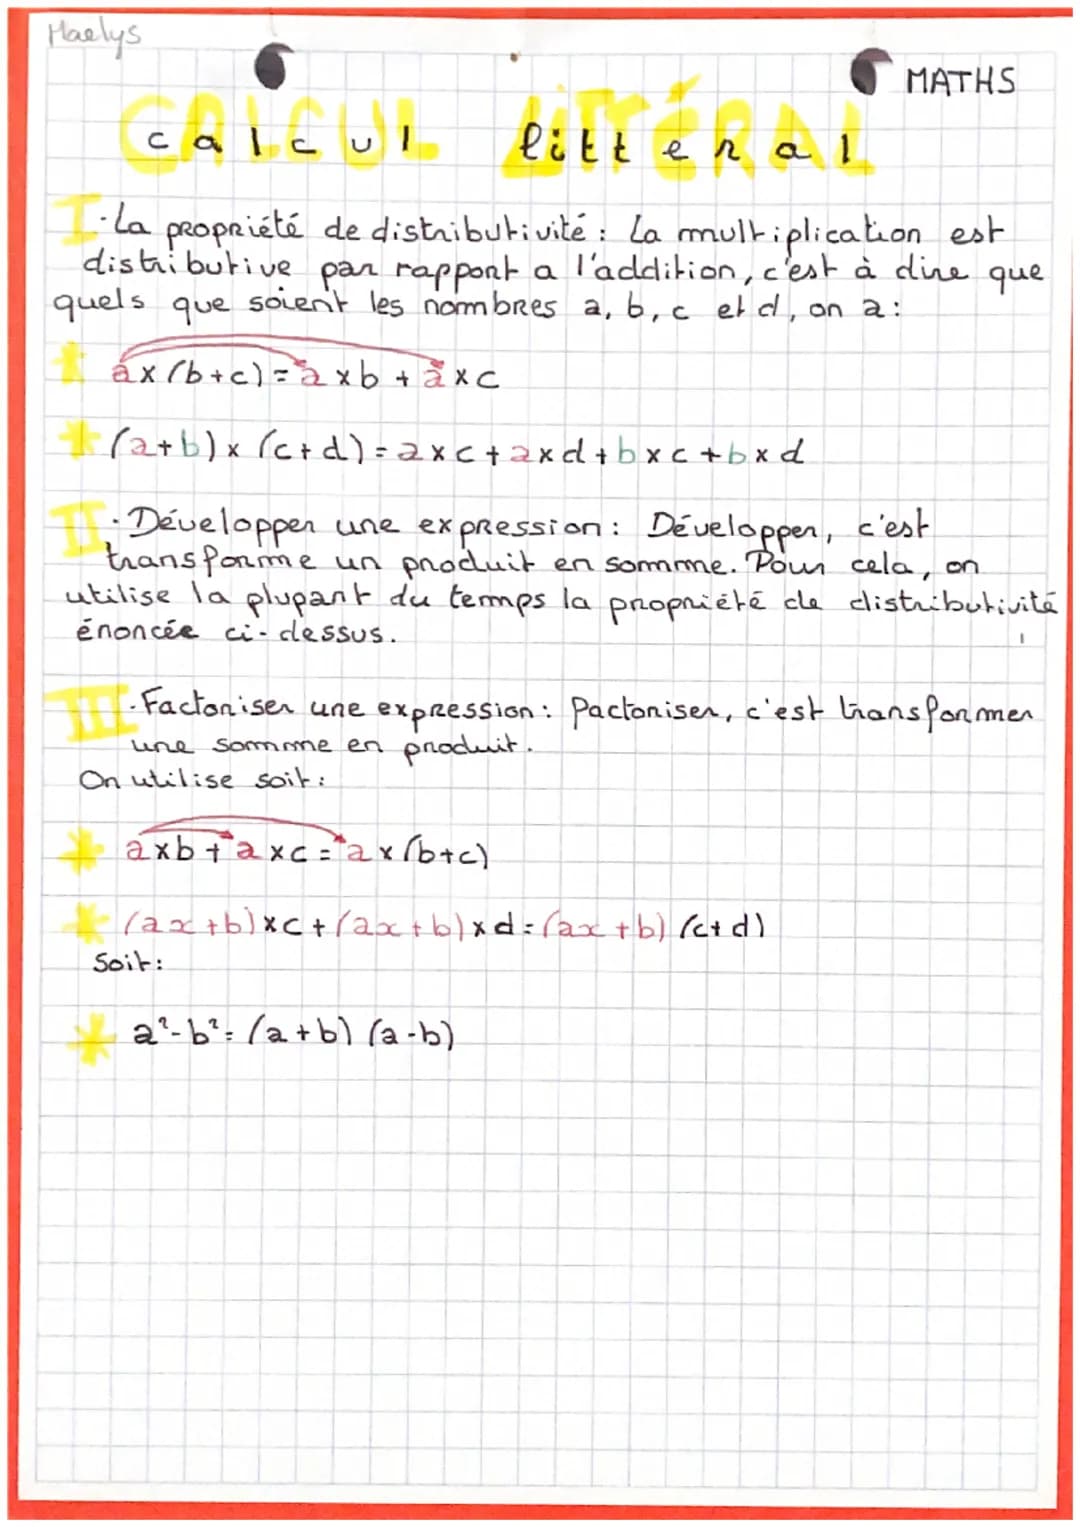 Maelys
MATHS
CALCUL LITTÉRAL
calcul littéral
I. La propriété de distributivité : La multiplication est
distributive par rapport a l'addition, c'est à dire que
quels que soient les nombres a, b, c et d, on a :
* a×(b+c)=a×b+a×c
* (a+b)×(c+d)=a×c+a×d+b×c+b×d
II. Développer une expression : Développer, c'est
transforme un produit en somme. Pour cela, on
utilise la plupart du temps la propriété de distributivité
énoncée ci-dessus.
III. Factoriser une expression : Factoriser, c'est transformer
une somme en produit.
On utilise soit :
* a×b+a×c=a×(b+c)
* (ax+b)×c+(ax+b)×d=(ax+b)(c+d)
Soit :
* a²-b²=(a+b)(a-b)